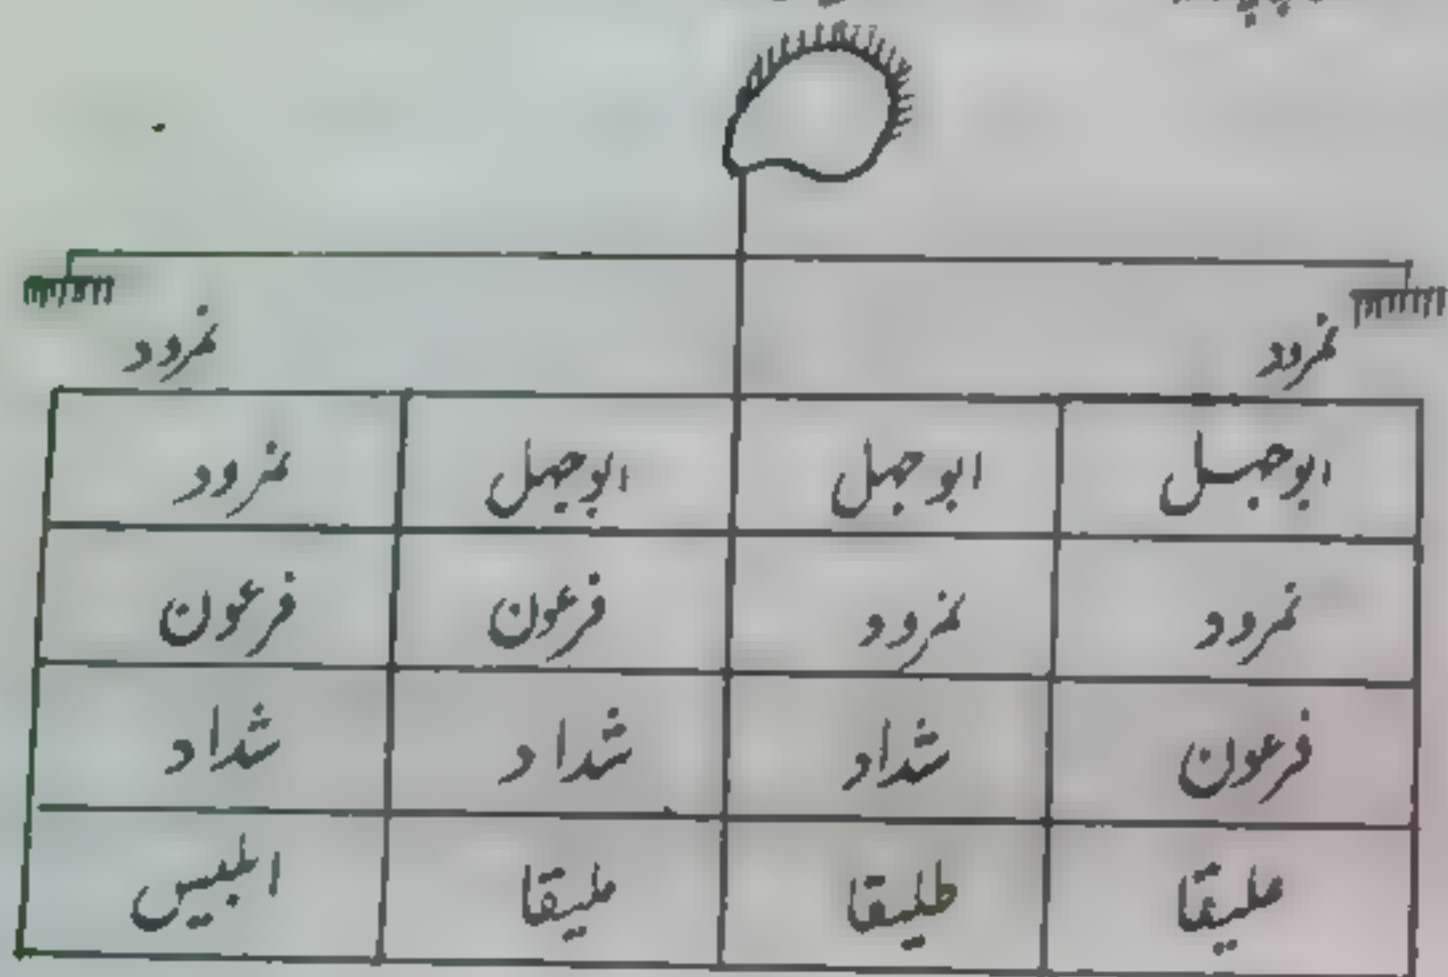 نمرود نمرود
ابوجہل ابوجہل ابوجہل نمرود
نمرود نمرود فرعون فرعون
فرعون شداد شداد شداد
علیقا طلیقا ملیقا ابلیس